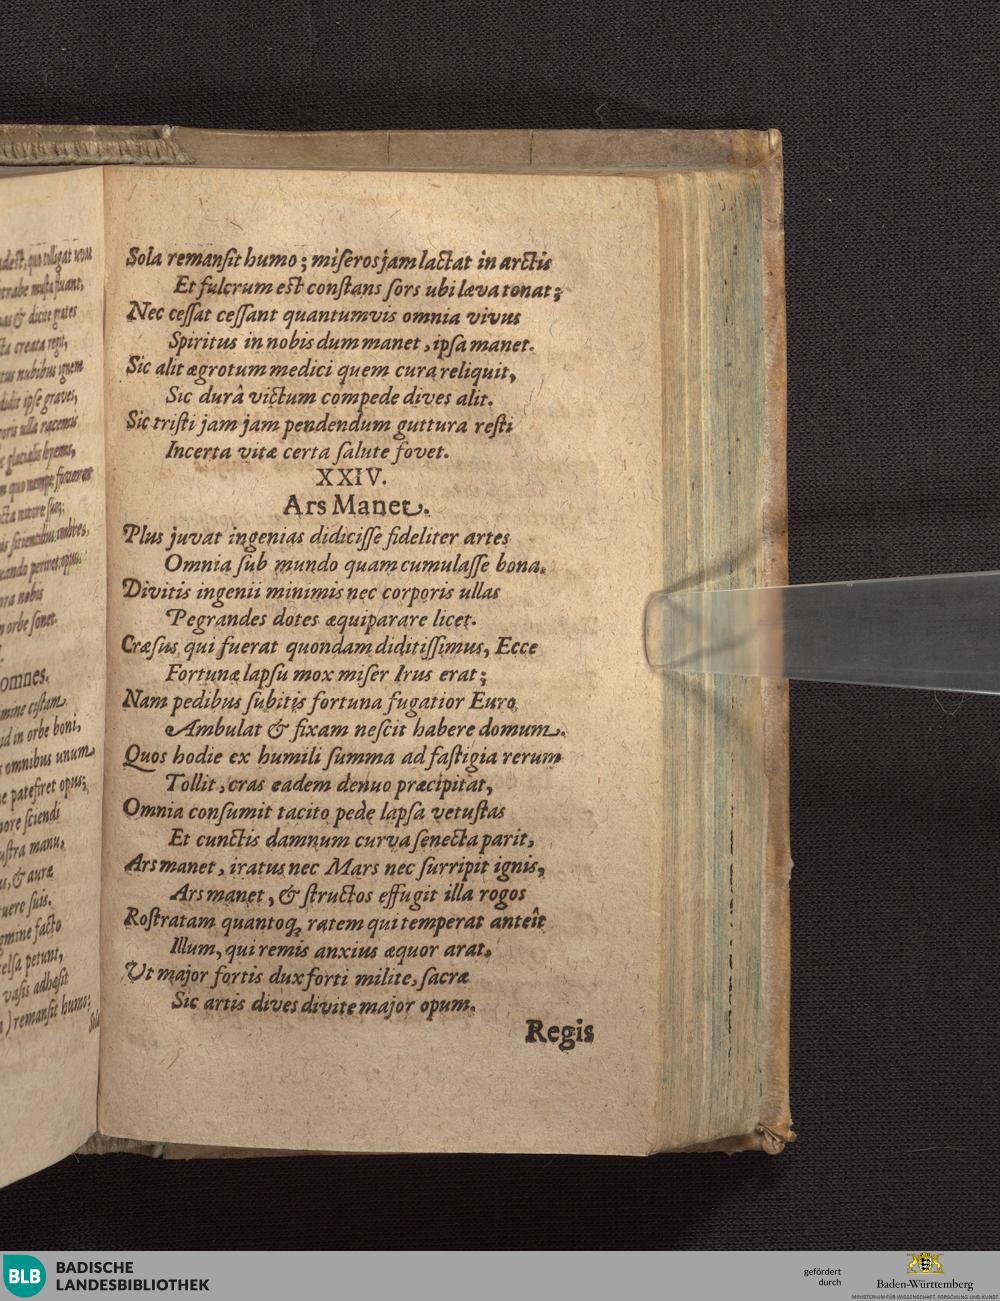 Sola remanſit humo; miſeros jam lactat in arctis
Et fulcrum eſt conſtans ſors ubi læva tonat;
Nec ceſſat ceſſant quantumvis omnia vivus
Spiritus in nobis dum manet, ipſa manet.
Sic alit ægrotum medici quem cura reliquit,
Sic durâ victum compede dives alit.
Sic triſti jam jam pendendum guttura reſti
Incerta vitæ certa ſalute fovet.
XXIV.
Ars Manet.
Plus juvat ingenias didiciſſe fideliter artes
Omnia ſub mundo quam cumulaſſe bona.
Divitis ingenii minimis nec corporis ullas
Pegrandes dotes æquiparare licet.
Cræſus, qui fuerat quondam diditiſſimus, Ecce
Fortunæ lapſu mox miſer Irus erat;
Nam pedibus ſubitis fortuna fugatior Euro
Ambulat & fixam neſcit habere domum.
Quos hodie ex humili ſumma ad faſtigia rerum
Tollit, cras eadem denuo præcipitat,
Omnia conſumit tacito pede lapſa vetuſtas
Et cunctis damnum curva ſenecta parit,
Ars manet, iratus nec Mars nec ſurripit ignis,
Ars manet, & ſtructos effugit illa rogos
Roſtratam quantoq; ratem qui temperat anteît
Illum, qui remis anxius æquor arat.
Vt major fortis dux forti milite, ſacræ
Sic artis dives divite major opum.
Regis
omnes.
id in orbe boni,
omnibus unum
patefiret opus;
) remanſit humo;
BLB
BADISCHE
LANDESBIBLIOTHEK
gefördert
durch
Baden-Württemberg
MINISTERIUM FÜR WISSENSCHAFT, FORSCHUNG UND KUNST